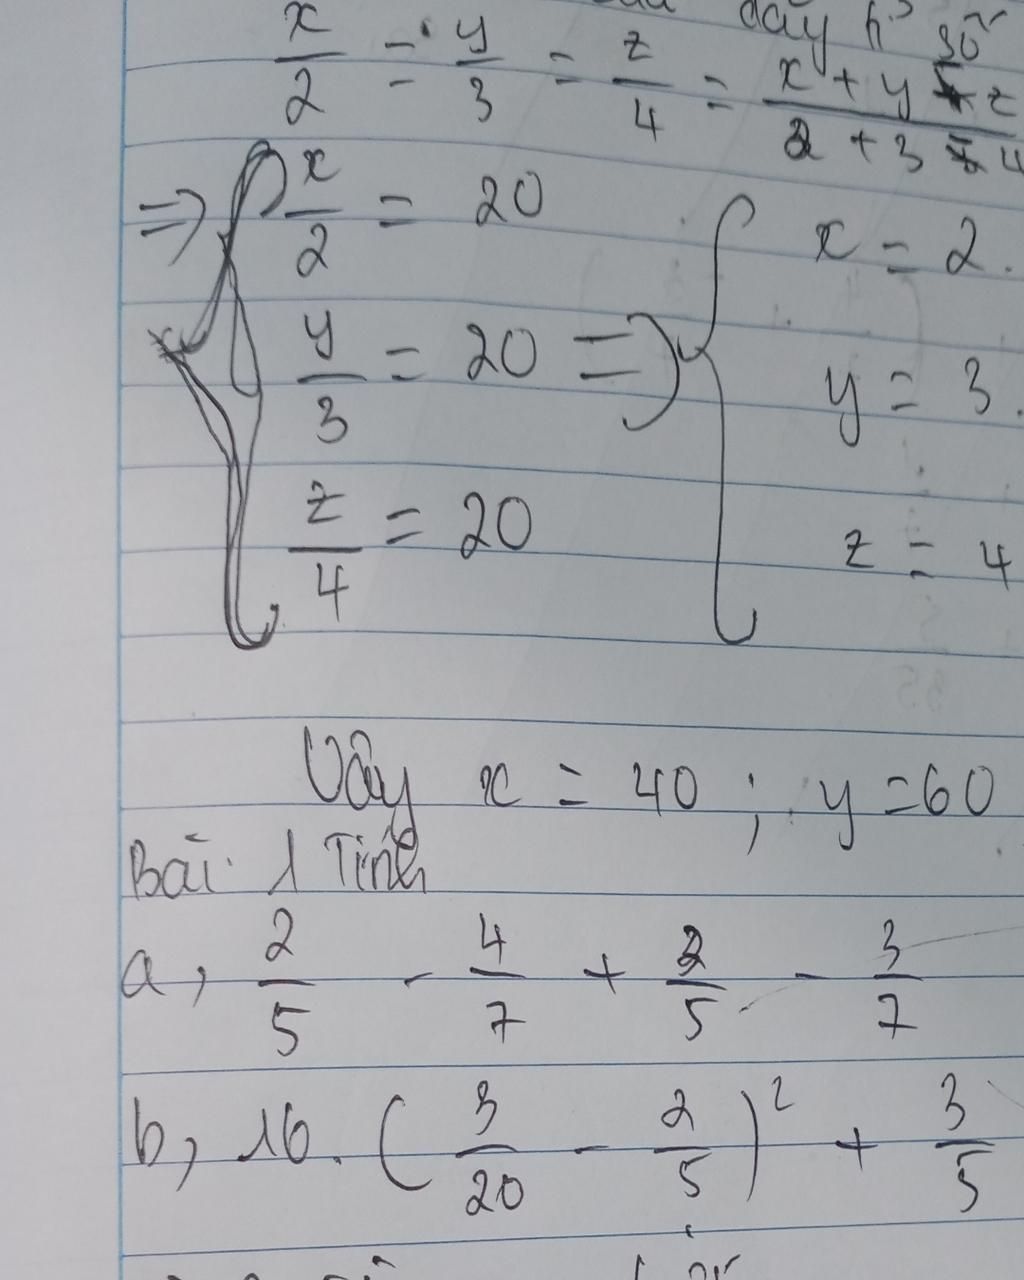 dãy tỉ số
x/2 = y/3 = z/4 = x + y - z / 2 + 3 - 4
=> { x/2 = 20
y/3 = 20 => { x = 2.
y = 3.
z/4 = 20
z = 4
Vây x = 40 ; y = 60
Bài 1 Tính
a, 2/5 - 4/7 + 2/5 - 3/7
b, 16. (3/20 - 2/5)² + 3/5